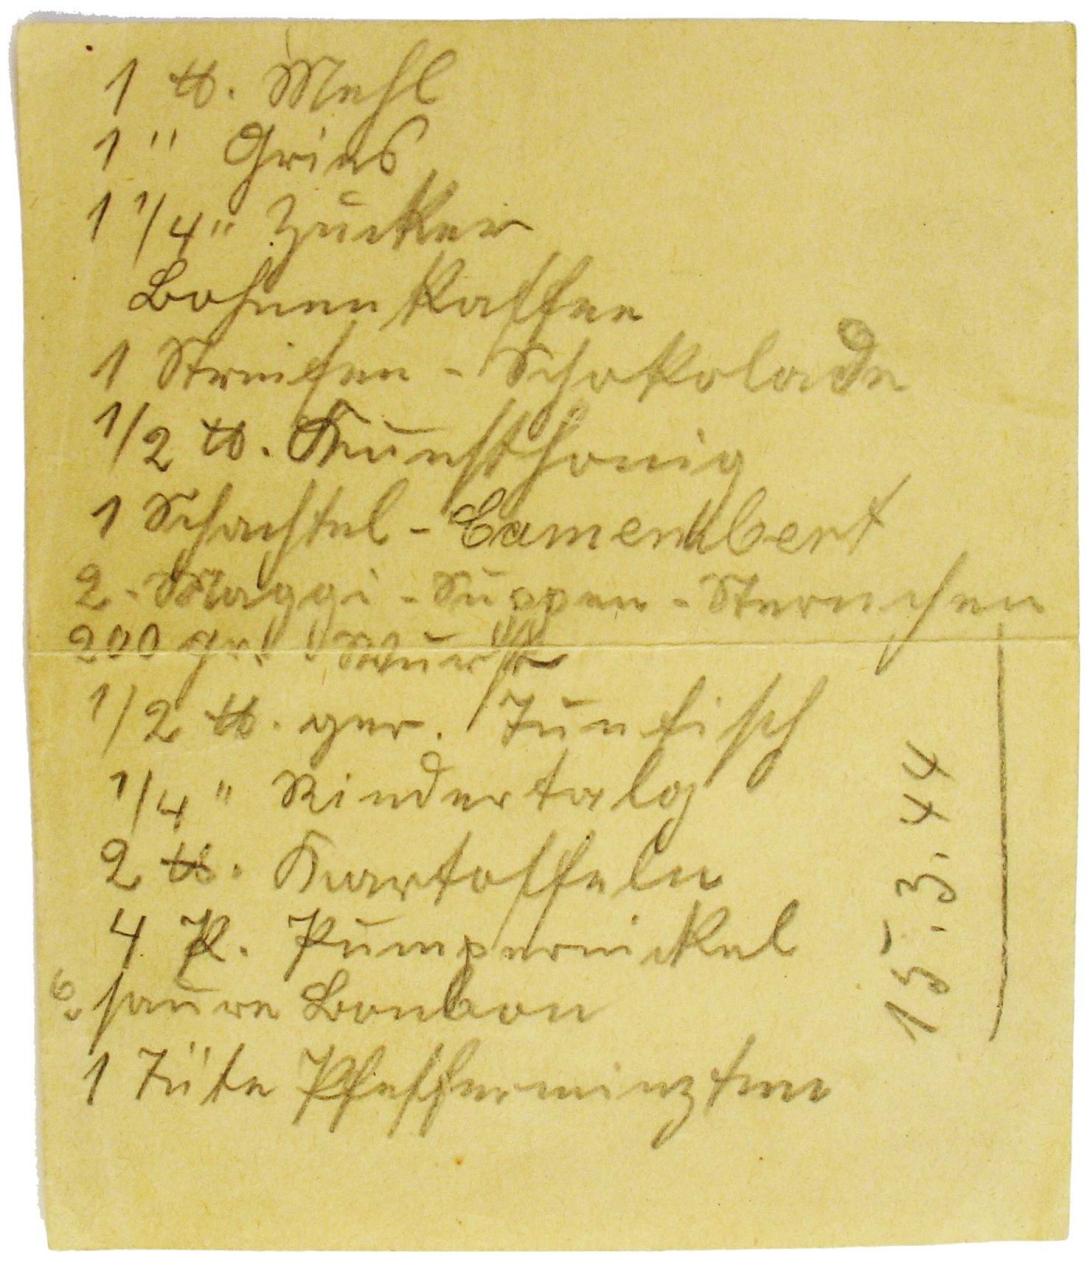 1 ℔. Mehl
1 " Gries
1 1/4 " Zucker
Bohnenkaffee
1 Streifen - Schokolade
1/2 ℔. Kunsthonig
1 Schachtel - Camembert
2 - Maggi - Suppen - Sternchen
200 gr. Wurst
1/2 ℔. ger. Tunfisch
1/4 " Rindertalg
2 ℔. Kartoffeln
4 P. Pumpernickel
6 saure Bonbon
1 Tüte Pfefferminztee
15.3.44